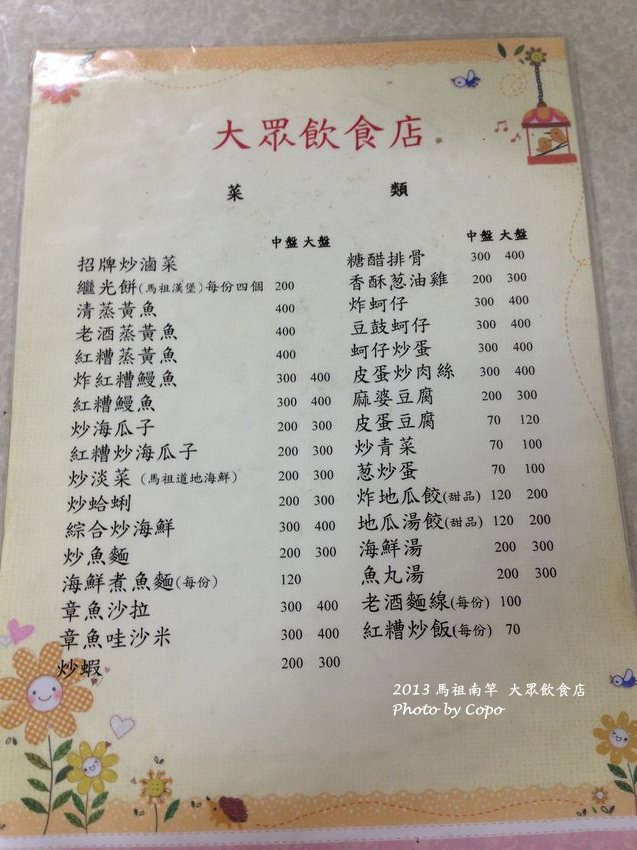 大眾飲食店
菜 類
中盤 大盤
招牌炒滷菜
繼光餅(馬祖漢堡)每份四個 200
清蒸黃魚 400
老酒蒸黃魚 400
紅糟蒸黃魚 400
炸紅糟鰻魚 300 400
紅糟鰻魚 300 400
炒海瓜子 200 300
紅糟炒海瓜子 200 300
炒淡菜 (馬祖道地海鮮) 200 300
炒蛤蜊 200 300
綜合炒海鮮 300 400
炒魚麵 200 300
海鮮煮魚麵(每份) 120
章魚沙拉 300 400
章魚哇沙米 300 400
炒蝦 200 300
中盤 大盤
糖醋排骨 300 400
香酥蔥油雞 200 300
炸蚵仔 300 400
豆鼓蚵仔 300 400
蚵仔炒蛋 300 400
皮蛋炒肉絲 300 400
麻婆豆腐 200 300
皮蛋豆腐 70 120
炒青菜 70 100
蔥炒蛋 70 100
炸地瓜餃(甜品) 120 200
地瓜湯餃(甜品) 120 200
海鮮湯 200 300
魚丸湯 200 300
老酒麵線(每份) 100
紅糟炒飯(每份) 70
2013 馬祖南竿 大眾飲食店
Photo by Copo